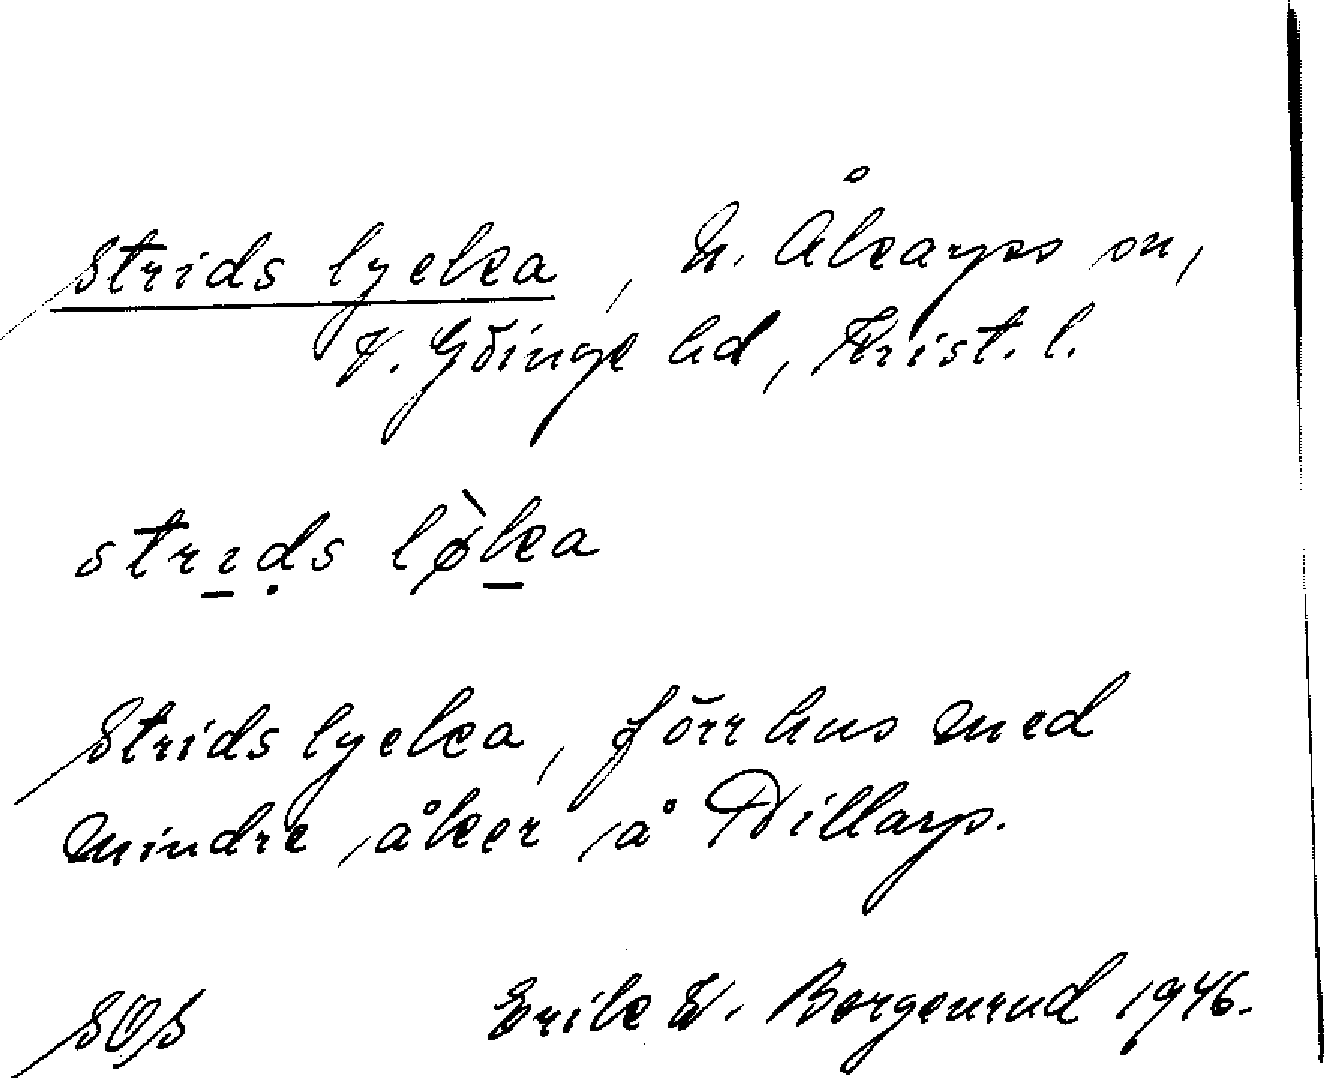 Strids lycka, N. Åkarps sn,
V. Göinge hd, Krist. l.
strids løka
Strids lycka, förr hus med
mindre åker å Dillarp.
SOS Erik W. Borgenrud 1946.